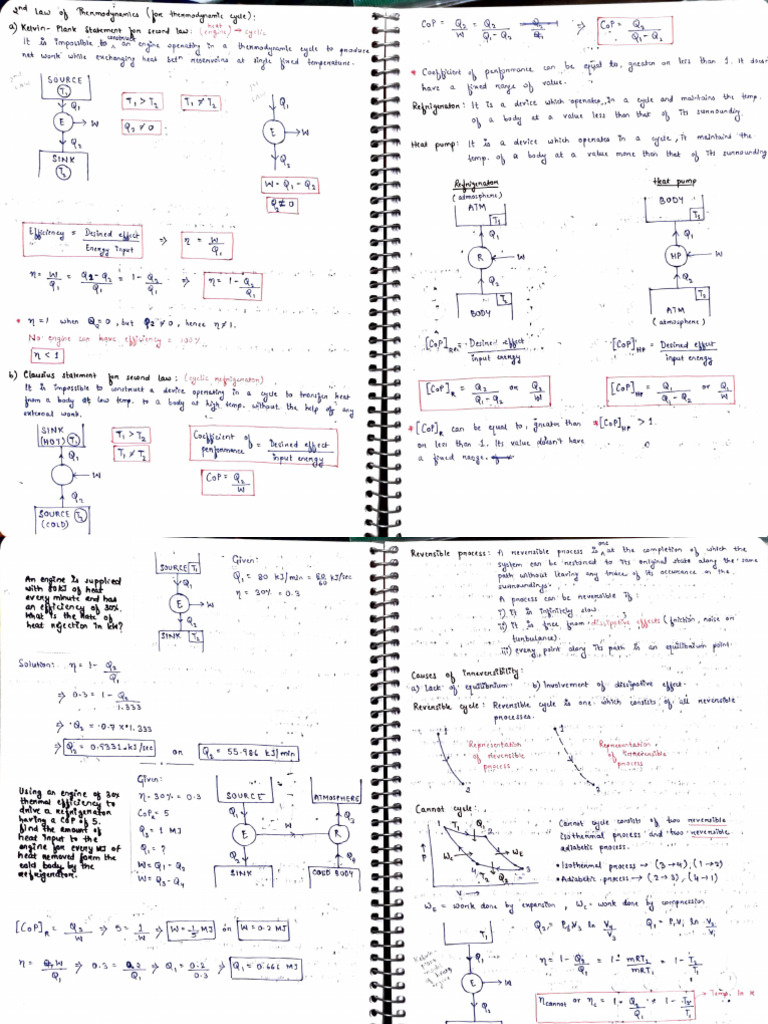 2nd Law of Thermodynamics (for thermodynamic cycle):
a) Kelvin-Plank Statement for second law: (heat engine) → cyclic
It is impossible to construct an engine operating in a thermodynamic cycle to produce
net work while exchanging heat betn reservoirs at single fixed temperature.
SOURCE
T₁
Q₁
E → W
Q₂
SINK
T₂
T₁ > T₂
T₁ ≠ T₂
Q₂ ≠ 0
Q₁
E → W
Q₂
W = Q₁ - Q₂
Q₂ ≠ 0
Efficiency = Desired effect / Energy input ⇒ η = W/Q₁
η = W/Q₁ = Q₁-Q₂/Q₁ = 1 - Q₂/Q₁ ⇒ η = 1 - Q₂/Q₁
* η = 1 when Q₂ = 0, but Q₂ ≠ 0, hence η ≠ 1.
No engine can have efficiency = 100%
η < 1
b) Clausius statement for second law: (cyclic refrigerator)
It is impossible to construct a device operating in a cycle to transfer heat
from a body at low temp. to a body at high temp. without the help of any
external work.
SINK
(HOT) T₁
Q₁
← W
Q₂
SOURCE T₂
(COLD)
T₁ > T₂
T₁ ≠ T₂
Coefficient of performance = Desired effect / input energy
CoP = Q₂/W
CoP = Q₂/W = Q₂/Q₁-Q₂ ⇒ CoP = Q₂/Q₁-Q₂
* Coefficient of performance can be equal to, greater or less than 1. It doesn
have a fixed range of value.
Refrigerator: It is a device which operates in a cycle and maintains the temp.
of a body at a value less than that of its surrounding.
Heat pump: It is a device which operates in a cycle, it maintains the
temp. of a body at a value more than that of its surrounding
Refrigerator
(atmosphere)
ATM
T₁
Q₁
R ← W
Q₂
T₂
BODY
Heat pump
BODY
T₁
Q₁
HP ← W
Q₂
T₂
ATM
(atmosphere)
[CoP]R = Desired effect / input energy
[CoP]HP = Desired effect / input energy
[CoP]R = Q₂/Q₁-Q₂ or Q₂/W
[CoP]HP = Q₁/Q₁-Q₂ or Q₁/W
* [CoP]R can be equal to, greater than
or less than 1. Its value doesn't have
a fixed range.
* [CoP]HP > 1
An engine is supplied
with 80KJ of heat
every minute and has
an efficiency of 30%.
What is the rate of
heat rejection in kW?
SOURCE T₁
Q₁
E → W
Q₂
SINK T₂
Given:
Q₁ = 80 kJ/min = 80/60 kJ/sec
η = 30% = 0.3
Solution: η = 1 - Q₂/Q₁
⇒ 0.3 = 1 - Q₂/1.333
⇒ Q₂ = 0.7 × 1.333
⇒ Q₂ = 0.9331 kJ/sec or Q₂ = 55.986 kJ/min
Using an engine of 30%
thermal efficiency to
drive a refrigerator
having a COP of 5.
find the amount of
heat input to the
engine for every MJ of
heat removed form the
cold body by the
refrigerator.
Given:
η = 30% = 0.3
CoP = 5
Q₃ = 1 MJ
Q₁ = ?
W = Q₁ - Q₂
W = Q₃ - Q₄
SOURCE
Q₁
E
W
Q₂
SINK
ATMOSPHERE
Q₄
R
Q₃
COLD BODY
[CoP]R = Q₃/W ⇒ 5 = 1/W ⇒ W = 1/5 MJ or W = 0.2 MJ
η = W/Q₁ ⇒ 0.3 = 0.2/Q₁ ⇒ Q₁ = 0.2/0.3 ⇒ Q₁ = 0.666 MJ
Reversible process: A reversible process is one at the completion of which the
system can be restored to its original state along the same
path without leaving any trace of its occurance in the
surroundings.
A process can be reversible if:
i) It is infinitely slow.
ii) It is free from dissipative effects (friction, noise or
turbulance).
iii) every point along its path is an equilibrium point.
Causes of irreversibility:
a) Lack of equilibrium b) Involvement of dissipative effect.
Reversible cycle: Reversible cycle is one which consists of all reversible
processes.
1
2
Representation
of reversible
process
1
2
Representation
of irreversible
process
Carnot cycle:
1 T₁ Q₁ 2
Wc
WE
4 T₂ Q₂ 3
P
V →
Carnot cycle consists of two reversible
isothermal process and two reversible
adiabatic process.
• Isothermal process → (3→4), (1→2)
• Adiabatic process → (2→3), (4→1)
WE = work done by expansion, Wc = work done by compression
T₁
Q₁
E → W
Q₂
η = 1 - Q₂/Q₁ = 1 - mRT₂/mRT₁ = 1 - T₂/T₁
ηcarnot or ηc = 1 - Q₂/Q₁ = 1 - T₂/T₁